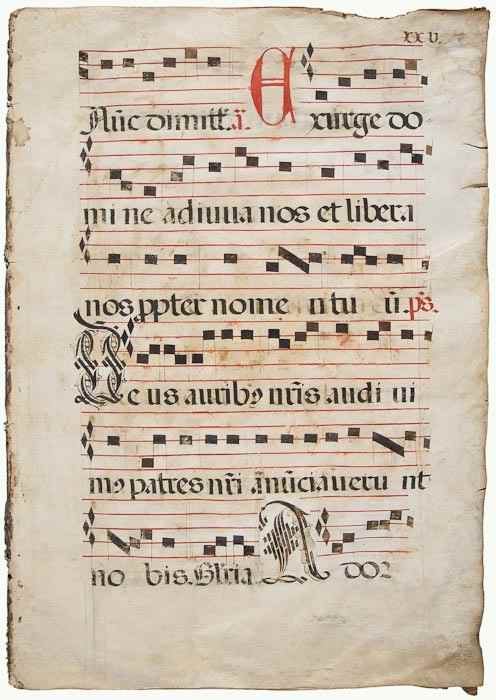 xxv.
Nūc dimitt. ā. Exurge do
mi ne adiuua nos et libera
nos ꝓpter nome n tu ū. ps.
De us auribꝰ nr̄is audi ui
mꝰ patres nr̄i ānūciaueru nt
no bis. Gloria. Ador